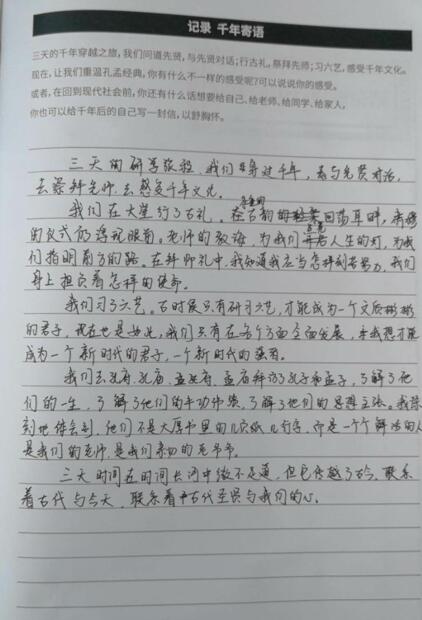 记录 千年寄语
三天的千年穿越之旅，我们问道先贤，与先贤对话；行古礼，祭拜先师；习六艺，感受千年文化。
现在，让我们重温孔孟经典，你有什么不一样的感受呢？可以说说你的感受。
或者，在回到现代社会前，你还有什么话想要给自己、给老师、给同学、给家人，
你也可以给千年后的自己写一封信，以舒胸怀。
三天的研学旅程，我们穿过千年，去与先贤对话，
去祭拜先师，去感受千年文化。
我们在大堂行了古礼。在古韵的回荡耳畔，
的仪式仍浮现眼前。老师的教诲，为我们点亮人生的灯，为我
们指明前方的路。在拜师礼中，我知道我应当怎样刻苦努力，我们
身上担负着怎样的使命。
我们习了六艺。古时候只有研习六艺，才能成为一个文质彬彬
的君子，现在也是如此，我们只有在各个方面全面发展，才能
成为一个新时代的君子，一个新时代的
我们去孔府、孔庙、孟府、孟庙拜访了孔子和孟子，了解了他
们的一生，了解了他们的丰功伟绩，了解了他们的思想主张。我深
刻地体会到，他们不是大厚书里的几页纸几行字，而是一个个鲜活的人
是我们的老师，是我们亲切的
三天时间在时间长河中微不足道，但它穿越了古今，联系
着古代与今天，联系着古代圣贤与我们的心。